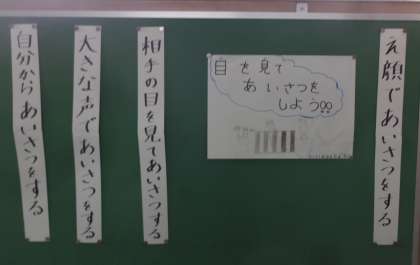 え顔であいさつをする
目を見て
あいさつを
しよう!!
相手の目を見てあいさつする
大きな声であいさつをする
自分からあいさつをする